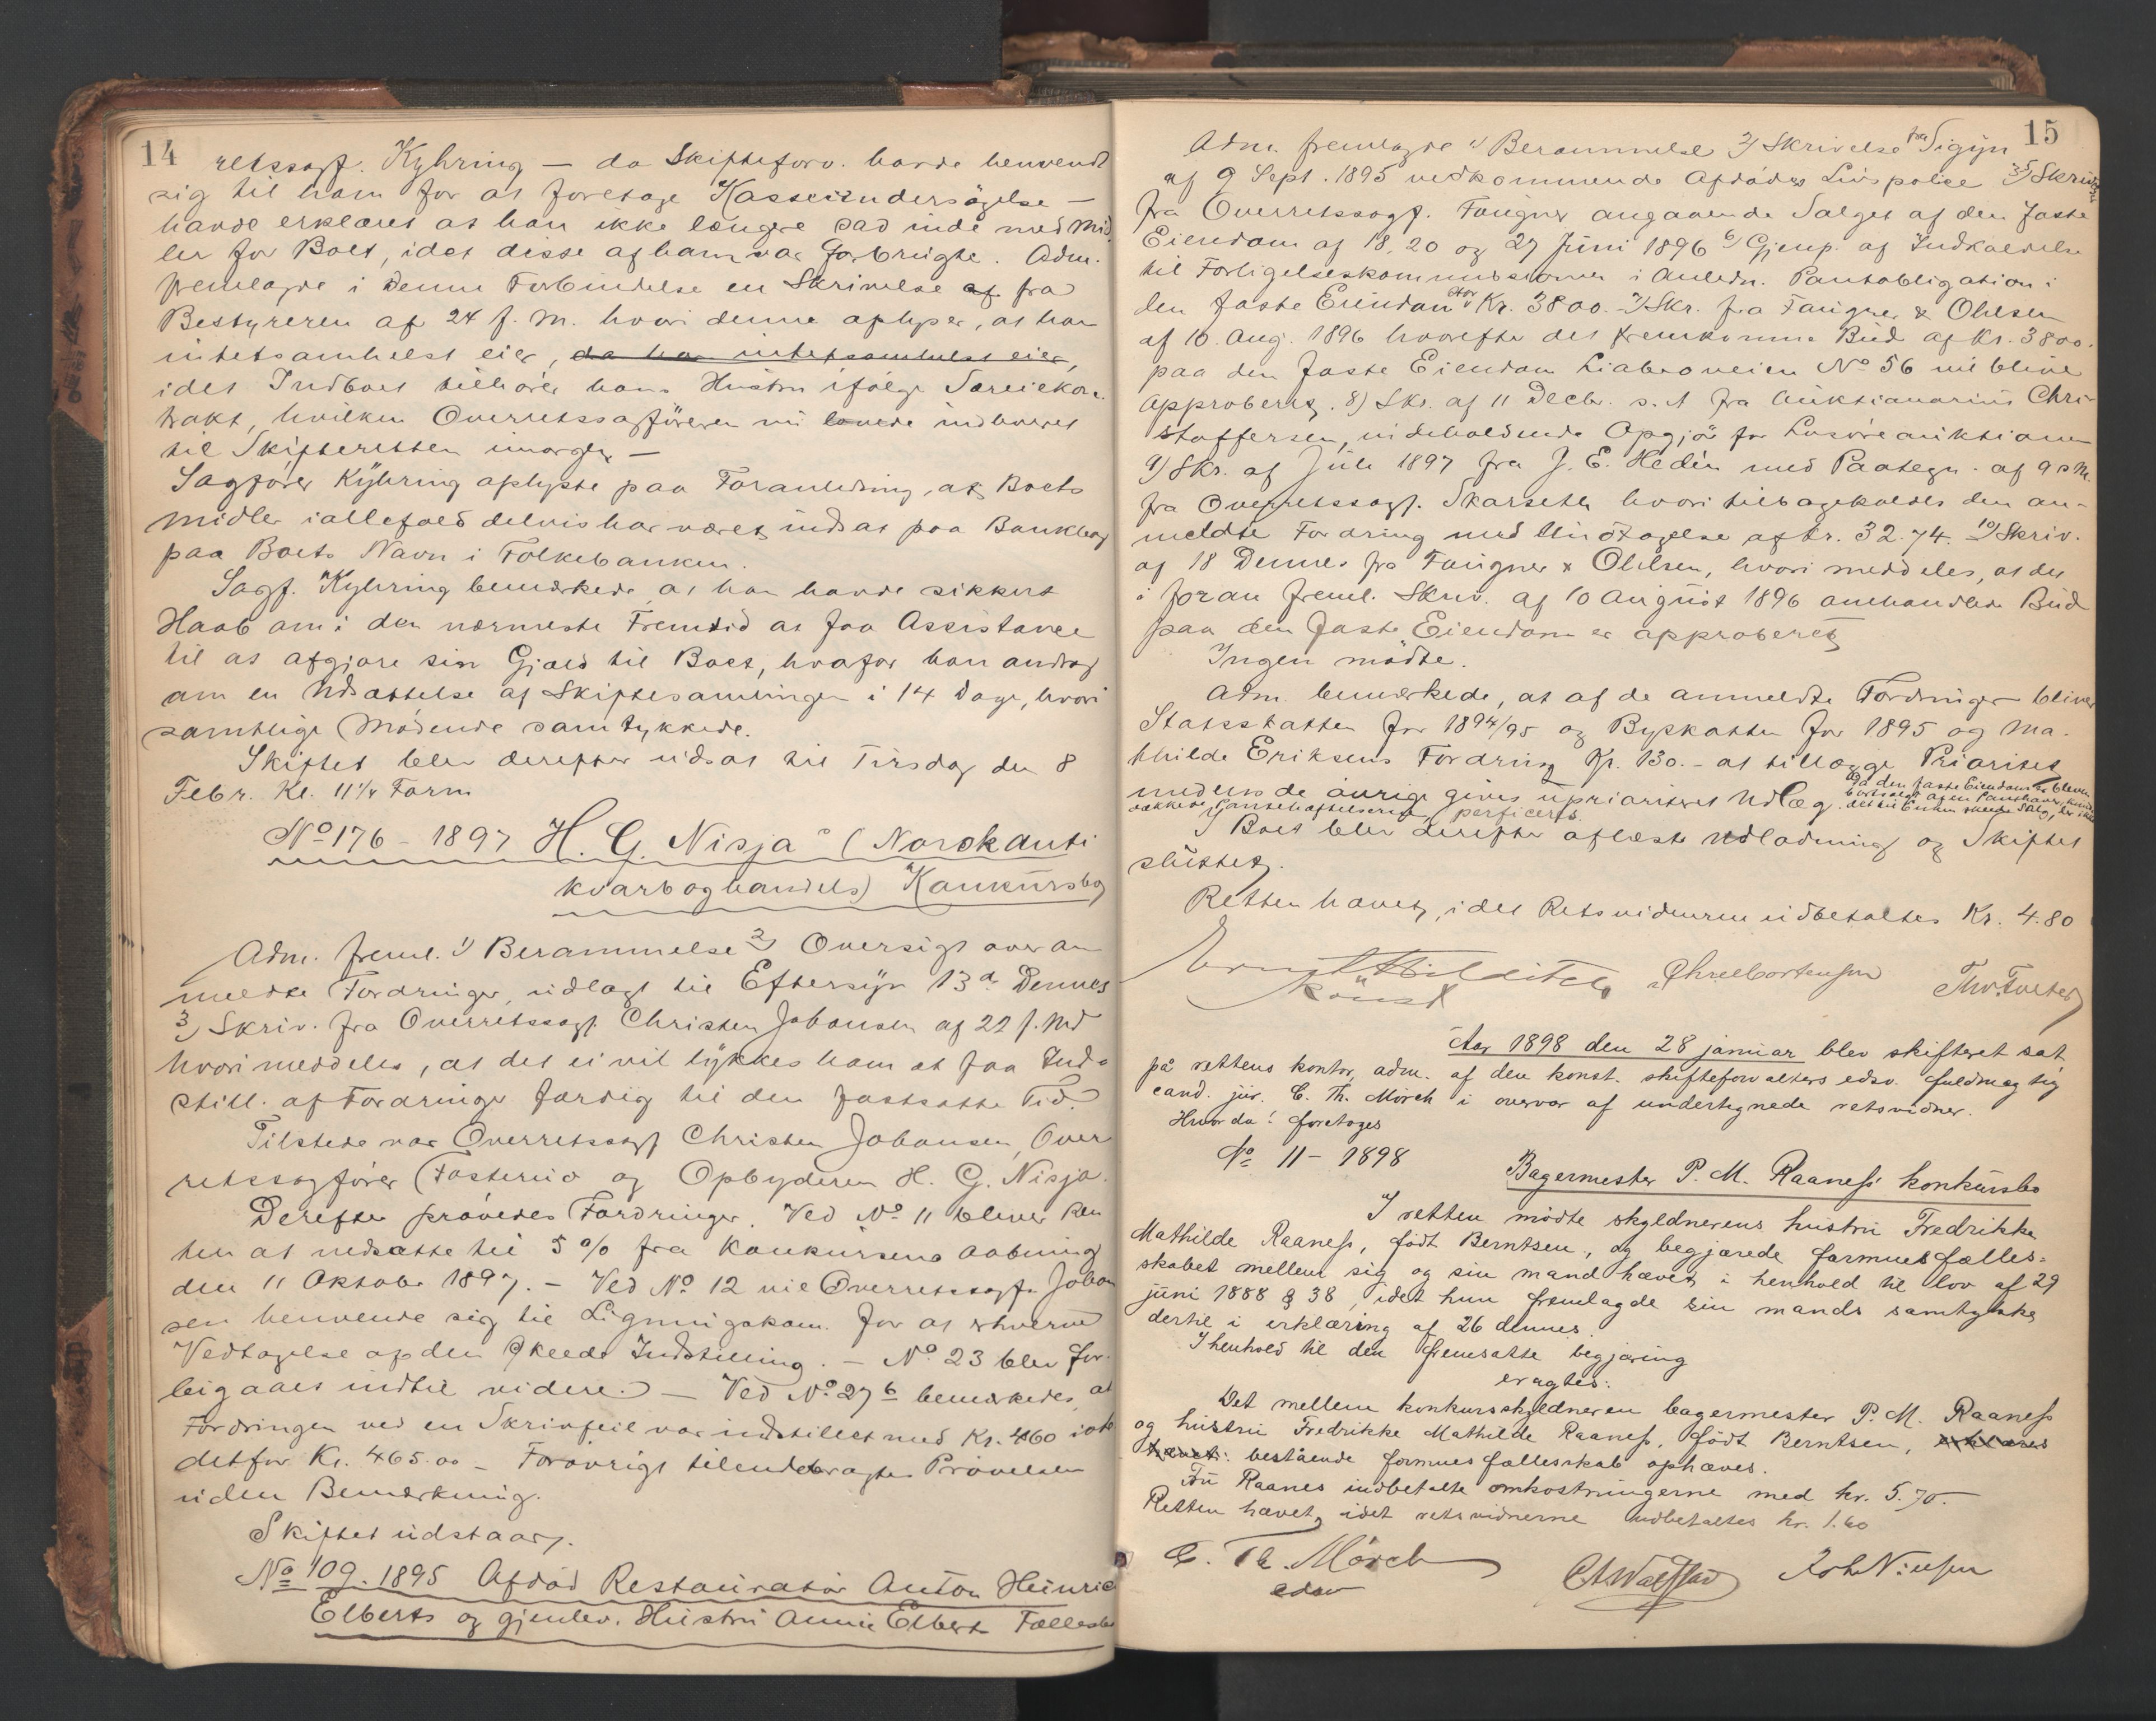 14
retssagf. Kyhring — da Skifteforv. havde henvendt
sig til ham for at foretage Kasseundersøgelse —
havde erklæret at han ikke længere sad inde med Mid
ler for Boet, idet disse af ham var forbrugte. Adm.
fremlagde i denne Forbindelse en Skrivelse af fra
Bestyreren af 24 f. M. hvori denne oplyser, at han
intetsomhelst eier, da han intetsomhelst eier,
idet Indboet tilhører hans Hustru ifølge Særeiekon-
trakt, hvilken Overretssagføreren vil levere indleveret
til Skifteretten imorgen —
Sagfører Kyhring oplyste paa Foranledning, at Boets
Midler iallefald delvis har været indsat paa Bankbog
paa Boets Navn i Folkebanken.
Sagf. Kyhring bemærkede at han havde sikkert
Haab om i den nærmeste Fremtid at faa Assistance
til at afgjøre sin Gjæld til Boet, hvorfor han androg
om en Udsættelse af Skiftesamlingen i 14 Dage, hvori
samtlige Mødende samtykkede.
Skiftet blev derefter udsat til Tirsdag den 8
Febr. Kl. 11¼ Form
No 176 - 1897 H. G. Nisja's (Norsk anti
kvarboghandels) Konkursbo
Adm. freml. 1) Berammelse 2) Oversigt over an
meldte Fordringer, udlagt til Eftersyn 13de Dennes
3) Skriv. fra Overretssagf. Christen Johansen af 22 f. Md
hvori meddeles, at det ei vil lykkes ham at faa Ind-
still. af Fordringer færdig til den fastsatte Tid.
Tilstede var Overretssagf Christen Johansen, Over
retssagfører Fasterud og Opbyderen H. G. Nisja.
Derefter prøvedes Fordringer. Ved No 11 bliver Ren
ten at nedsætte til 5 % fra Konkursens Aabning
den 11 Oktober 1897. - Ved No 12 vil Overretssagf. Johan
sen henvende sig til Ligningskom. for at erhverve
Vedtagelse af den skeede Indstilling. - No 23 blev for-
bigaaet indtil videre. - Ved No 27 b bemærkedes, at
Fordringen ved en Skrivfeil var indstillet med Kr. 460 iste
detfor Kr. 465.00 - Forøvrigt tilendebragtes Prøvelsen
uden Bemærkning.
Skiftet udstaar.
No 109. 1895 Afdød Restauratør Anton Heinric
Elberts og gjenlev. Hustru Annie Elbert Fællesbo
15
Adm. fremlagde 1) Berammelse 2) Skrivelse fra Sigyn
af 9 Sept. 1895 vedkommende Afdødes Livspolice 3/5) Skrivelse
fra Overretssagf. Faugner angaaende Salget af den faste
Eiendom af 18, 20 og 27 Juni 1896 6) Gjenp. af Indkaldelse
til Forligelseskommissionen i Anledn. Pantobligation i
den faste Eiendom stor Kr. 3800.- 7) Skr. fra Faugner & Ohlsen
af 10 Aug. 1896 hvorefter det fremkomne Bud af Kr. 3800.
paa den faste Eiendom Liabroveien No 56 vil blive
approberet. 8) Skr. af 11 Decbr. s. A fra Auktionarius Chri-
stoffersen, indeholdende Opgjør for Løsøreauktionen
9) Skr. af Juli 1897 fra J. E. Hedén med Paategn. af 9 s M.
fra Overretssagf. Skarseth hvori tilbagekaldes den an-
meldte Fordring med Undtagelse af Kr. 32.74. 10) Skriv.
af 18 Dennes fra Faugner & Ohlsen, hvori meddeles, at det
i foran freml. Skriv. af 10 August 1896 omhandlede Bud
paa den faste Eiendom er approberet
Ingen mødte.
Adm. bemærkede, at af de anmeldte Fordringer bliver
Statsskatten for 1894/95 og Byskatten for 1895 og Ma-
thilde Eriksens Fordring Kr. 130.- at tillægge Prioritet
medens de øvrige gives uprioriteret Udlæg. Da den faste Eiendom er bleven
bortsolgt af en Panthaver, kunde
dækkede, Pantehæftelserne perficeres. det til Enken skeede Salg, der ikke
I Boet blev derefter aflæst Udlodning og Skiftet
sluttet.
Retten hævet, idet Retsvidnerne udbetaltes Kr. 4.80
Konst
Thv. Tvethe
Aar 1898 den 28 januar blev skifteret sat
på rettens kontor, adm. af den konst. skifteforvalters edsv. fuldmægtig
cand. jur. C. Th. Mörch i overvær af undertegnede retsvidner.
Hvorda: foretoges
No 11 - 1898
Bagermester P. M. Raaness konkursbo
I retten mødte skyldnerens hustru Fredrikke
Mathilde Raaness, født Berntsen, og begjærede formuesfælles-
skabet mellem sig og sin mand hævet i henhold til lov af 29
juni 1888 § 38, idet hun fremlagde sin mands samtykke
dertil i erklæring af 26 dennes.
I henhold til den fremsatte begjæring
eragtes:
Det mellem konkursskyldneren bagermester P. M. Raaness
og hustru Fredrikke Mathilde Raaness, født Berntsen, erklæres
hævet: bestående formuesfællesskab ophæves.
Fru Raanes indbetalte omkostningerne med kr. 5.70.
Retten hævet, idet retsvidnerne udbetaltes kr. 1.60
C. Th. Mörch
edsv
Joh Nielsen